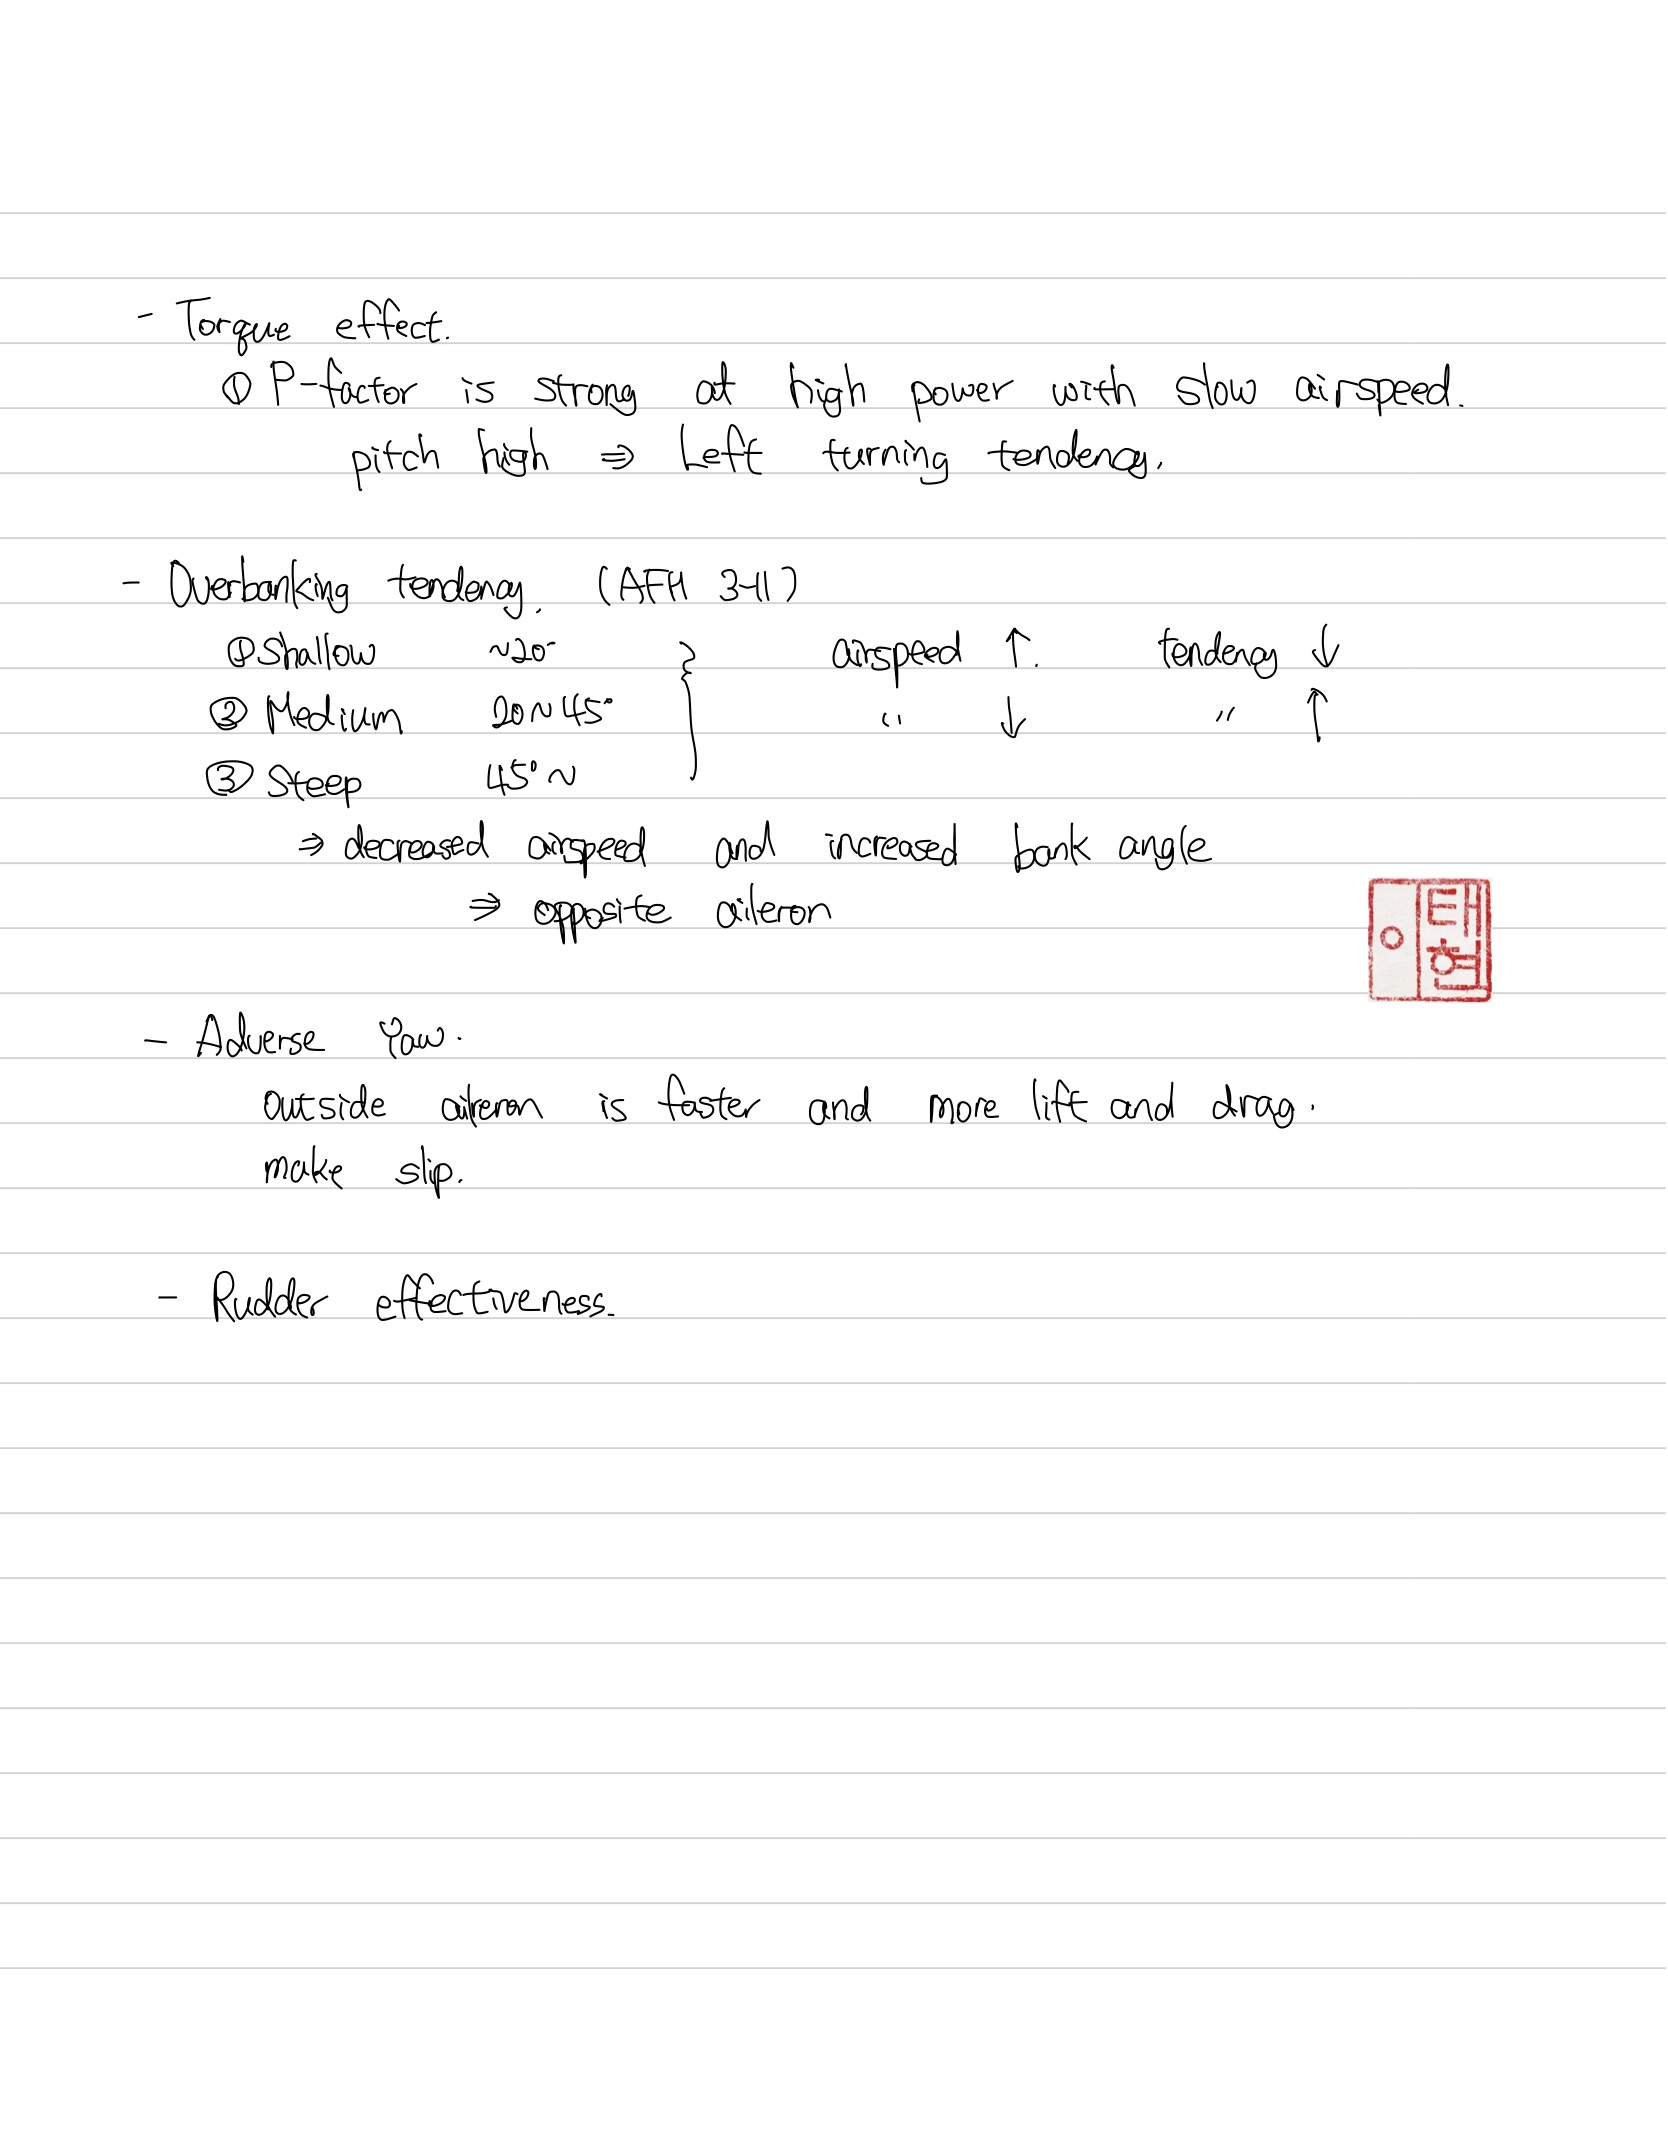 - Torque effect.
① P-factor is strong at high power with slow airspeed.
pitch high ⇒ Left turning tendency.
- Overbanking tendency. (AFH 3-11)
① Shallow ~20° airspeed ↑. tendency ↓
② Medium 20~45° " ↓ " ↑
③ Steep 45°~
⇒ decreased airspeed and increased bank angle
⇒ opposite aileron
이태현
- Adverse Yaw.
outside aileron is faster and more lift and drag.
make slip.
- Rudder effectiveness.